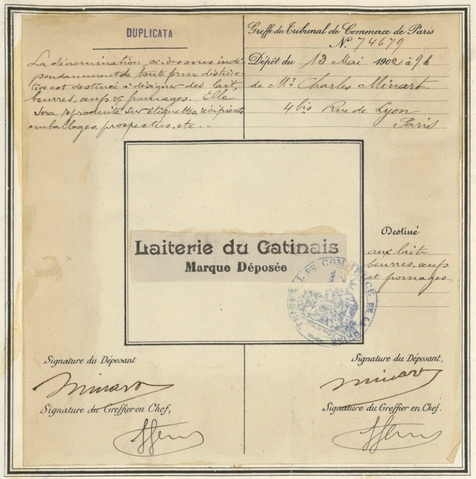 DUPLICATA
La dénomination ci-dessus indé-
pendamment de toute forme distinc-
tive est destinée à désigner des lait,
beurres, œufs & fromages. Elle
sera reproduite sur étiquettes, récipients
emballages, prospectus, etc.
Greffe du Tribunal de Commerce de Paris
N.º 74679
Dépôt du 13 Mai 1902 à 9 h
de Mr. Charles Minart
4 bis Rue de Lyon
Paris
Laiterie du Gatinais
Marque Déposée
Destiné
aux lait
beurres, œufs
et fromages
Signature du Déposant
Minart
Signature du Greffier en Chef,
Signature du Déposant,
Minart
Signature du Greffier en Chef.